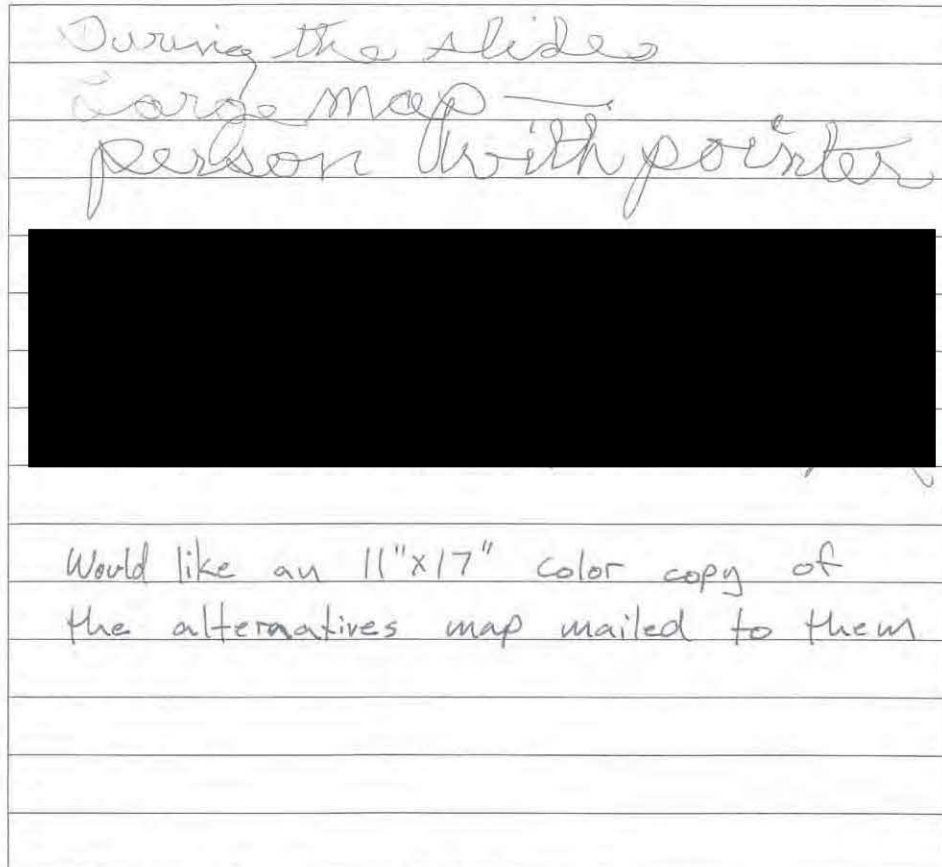 During the slides
Large map —
person with pointer
Would like an 11"x17" color copy of
the alternatives map mailed to them